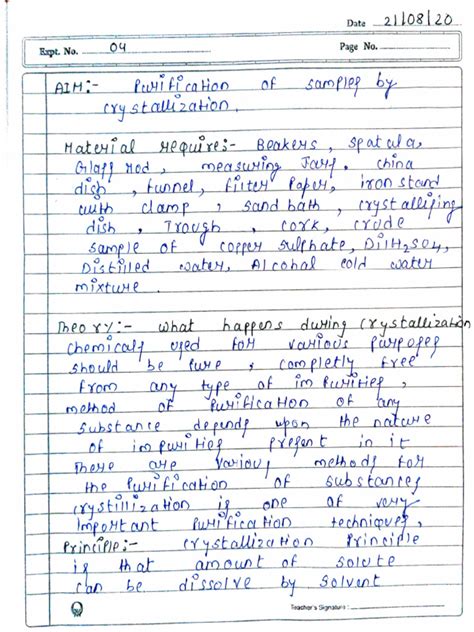 Date 21/08/20
Expt. No. 04 Page No.
AIM:- Purification of samples by
crystallization.
Material require:- Beakers, spatula,
Glass rod, measuring Jars, china
dish, funnel, filter Paper, iron stand
with clamp, sand bath, crystallizing
dish, Trough, cork, crude
sample of copper sulphate, Dil H2SO4,
Distilled water, Alcohal cold water
mixture.
Theory:- what happens during crystallization
chemicals used for various purposes
should be Pure, completly free
from any type of impurities,
method of Purification of any
substance depends upon the nature
of impurities present in it
There are various methods for
the Purification of substances
crystillization is one of very
Important Purification techniques,
Principle:- crystallization Principle
is that amount of solute
can be dissolve by solvent
Teacher's Signature :